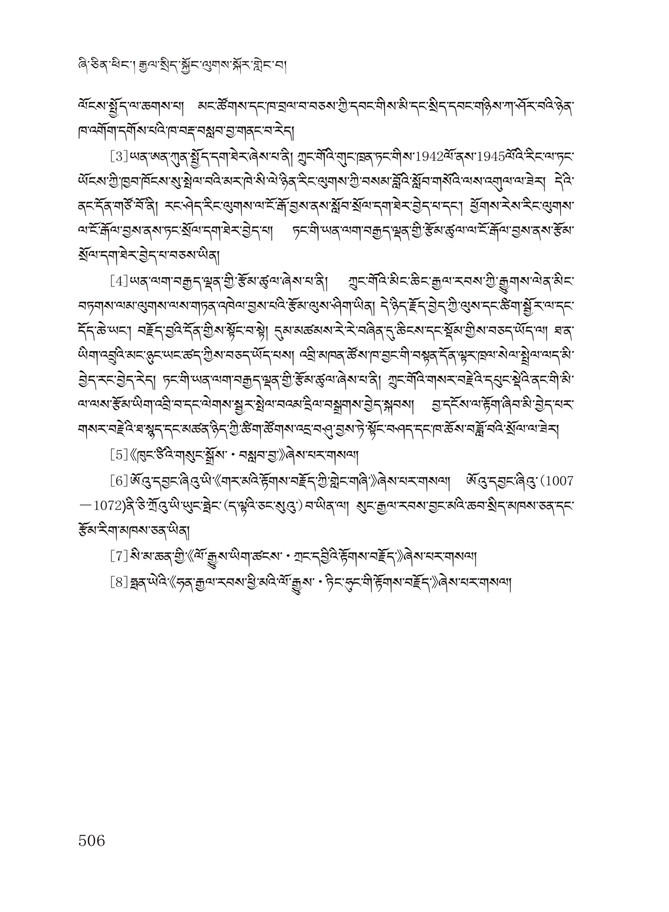 ཞི་ཅིན་ཕིང་། རྒྱལ་སྲིད་སྐྱོང་ལུགས་སྐོར་གླེང་བ།
ལོངས་སྤྱོད་ལ་ཆགས་པ། མང་ཚོགས་དང་ཁ་བྲལ་བ་བཅས་ཀྱི་དབང་གིས་མི་དང་སྲིད་དབང་གཉིས་ཀ་ཤོར་བའི་ཉེན་
ཁ་འགོག་དགོས་པའི་ཁ་བརྡ་བསླབ་བྱ་གནང་བ་རེད།
[3]ཡན་ཨན་ཀུན་སྤྱོད་དག་ཐེར་ཞེས་པ་ནི། ཀྲུང་གོའི་གུང་ཁྲན་ཏང་གིས་1942ལོ་ནས་1945ལོའི་རིང་ལ་ཏང་
ཡོངས་ཀྱི་ཁྱབ་ཁོངས་སུ་སྤེལ་བའི་མར་ཁེ་སི་ལེ་ཉིན་རིང་ལུགས་ཀྱི་བསམ་བློའི་སློབ་གསོའི་ལས་འགུལ་ལ་ཟེར། དེའི་
ནང་དོན་གཙོ་བོ་ནི། རང་ཤེད་རིང་ལུགས་ལ་ངོ་རྒོལ་བྱས་ནས་སློབ་སྲོལ་དག་ཐེར་བྱེད་པ་དང་། ཕྱོགས་རིས་རིང་ལུགས་
ལ་ངོ་རྒོལ་བྱས་ནས་ཏང་སྲོལ་དག་ཐེར་བྱེད་པ། ཏང་གི་ཡན་ལག་བརྒྱད་ལྡན་གྱི་རྩོམ་ཚུལ་ལ་ངོ་རྒོལ་བྱས་ནས་རྩོམ་
སྲོལ་དག་ཐེར་བྱེད་པ་བཅས་ཡིན།
[4]ཡན་ལག་བརྒྱད་ལྡན་གྱི་རྩོམ་ཚུལ་ཞེས་པ་ནི། ཀྲུང་གོའི་མིང་ཆིང་རྒྱལ་རབས་ཀྱི་རྒྱུགས་ལེན་མིང་
བཏགས་ལམ་ལུགས་ལས་གཏན་འཁེལ་བྱས་པའི་རྩོམ་ལུས་ཤིག་ཡིན། དེ་ཉིད་རྗོད་བྱེད་ཀྱི་ལུས་དང་ཚིག་སྦྱོར་ལ་དང་
དོད་ཆེ་ཡང་། བརྗོད་བྱའི་དོན་གྱིས་སྟོང་བ་སྟེ། དུམ་མཚམས་རེ་རེ་བཞིན་དུ་ཆིངས་དང་སྡོམ་གྱིས་བཅད་ཡོད་ལ། ཐ་ན་
ཡིག་འབྲུའི་མང་ཉུང་ཡང་ཚད་ཀྱིས་བཅད་ཡོད་པས། འབྲི་མཁན་ཚོས་ཁ་བྱང་གི་བསྟན་དོན་ལྟར་ཁྲལ་སེལ་སྤྲེལ་ལད་མི་
བྱེད་རང་བྱེད་རེད། ཏང་གི་ཡན་ལག་བརྒྱད་ལྡན་གྱི་རྩོམ་ཚུལ་ཞེས་པ་ནི། ཀྲུང་གོའི་གསར་བརྗེའི་དཔུང་སྡེའི་ནང་གི་མི་
ལ་ལས་རྩོམ་ཡིག་འབྲི་བ་དང་ལེགས་སྒྱུར་སྤེལ་བའམ་དྲིལ་བསྒྲགས་བྱེད་སྐབས། བྱ་དངོས་ལ་རྟོག་ཞིབ་མི་བྱེད་པར་
གསར་བརྗེའི་ཐ་སྙད་དང་མཚན་ཉིད་ཀྱི་ཚིག་ཚོགས་འདྲ་བཤུ་བྱས་ཏེ་སྟོང་བཤད་དང་ཁ་ཆོས་བརློ་བའི་སྲོལ་ལ་ཟེར།
[5]《ཁུང་ཙིའི་གསུང་སྒྲོས་·བསླབ་བྱ་》ཞེས་པར་གསལ།
[6]ཨོའུ་དབྱང་ཞིའུ་ཡི་《གར་མའི་རྟོགས་བརྗོད་ཀྱི་གླེང་གཞི་》ཞེས་པར་གསལ། ཨོའུ་དབྱང་ཞིའུ་(1007
—1072)ནི་ཅི་ཀྲོའུ་ཡི་ཡུང་ཧྥེང་(ད་ལྟའི་ཅང་སུའུ་)བ་ཡིན་ལ། སུང་རྒྱལ་རབས་བྱང་མའི་ཆབ་སྲིད་མཁས་ཅན་དང་
རྩོམ་རིག་མཁས་ཅན་ཡིན།
[7]སི་མ་ཆན་གྱི་《ལོ་རྒྱུས་ཡིག་ཚངས་·ཀྲང་དབྱིའི་རྟོགས་བརྗོད་》ཞེས་པར་གསལ།
[8]ཧྥན་ཡེའི་《ཧན་རྒྱལ་རབས་ཕྱི་མའི་ལོ་རྒྱུས་·ཏིང་ཧུང་གི་རྟོགས་བརྗོད་》ཞེས་པར་གསལ།
506